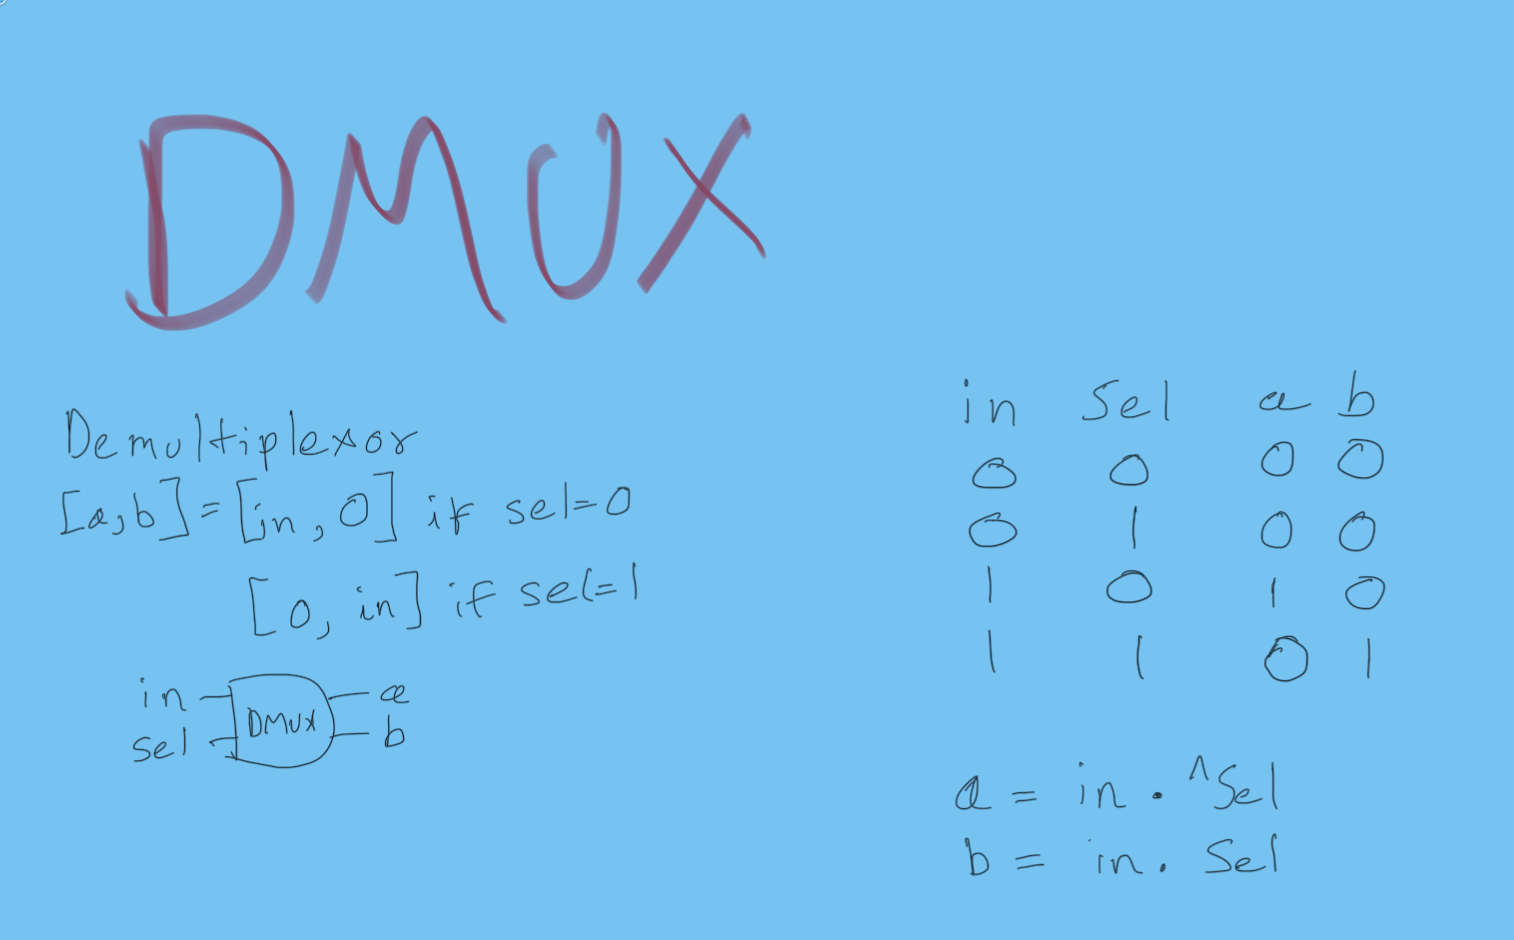 DMUX
Demultiplexor
[a,b] = [in, 0] if sel=0
[0, in] if sel=1
in DMUX a
sel b
in Sel a b
0 0 0 0
0 1 0 0
1 0 1 0
1 1 0 1
a = in . ^Sel
b = in . Sel